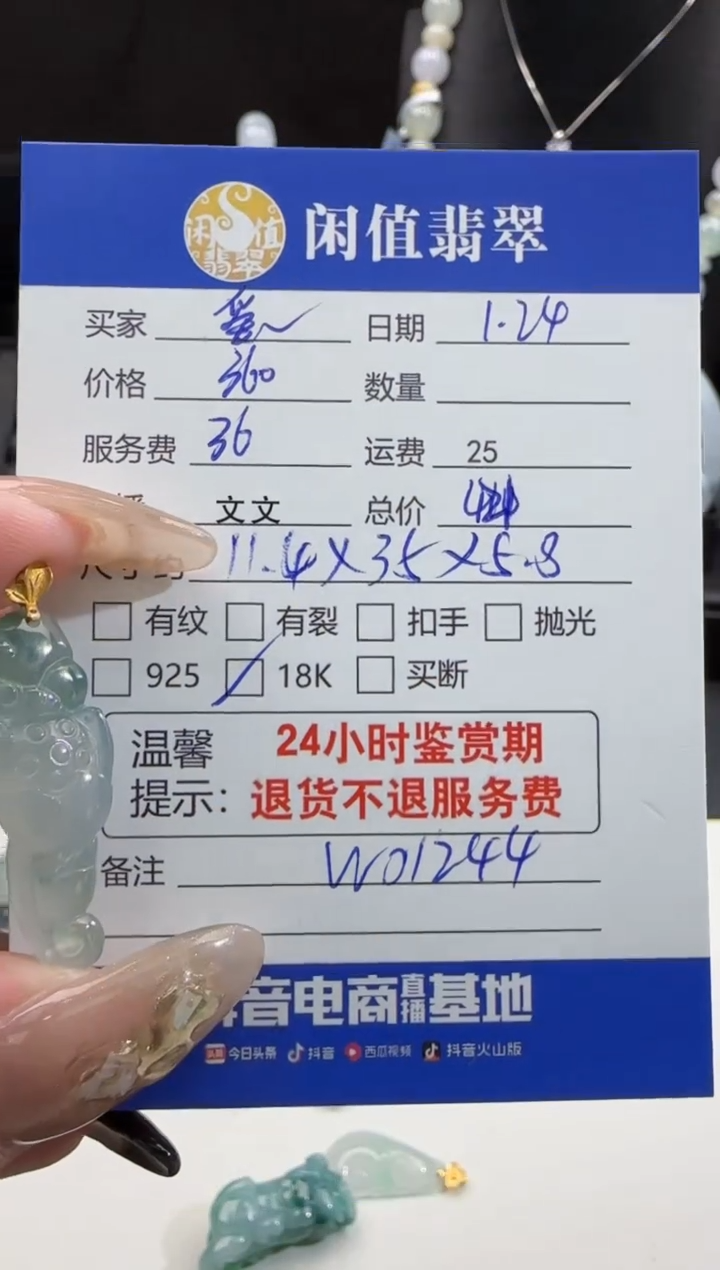 闲值翡翠
闲值翡翠
买家 日期 1.24
价格 360 数量
服务费 36 运费 25
播 文文 总价
尺寸约 11.4×35×5.8
有纹 有裂 扣手 抛光
925 18K 买断
温馨 24小时鉴赏期
提示：退货不退服务费
备注 W01244
音电商直播基地
头条 今日头条 抖音 西瓜视频 抖音火山版